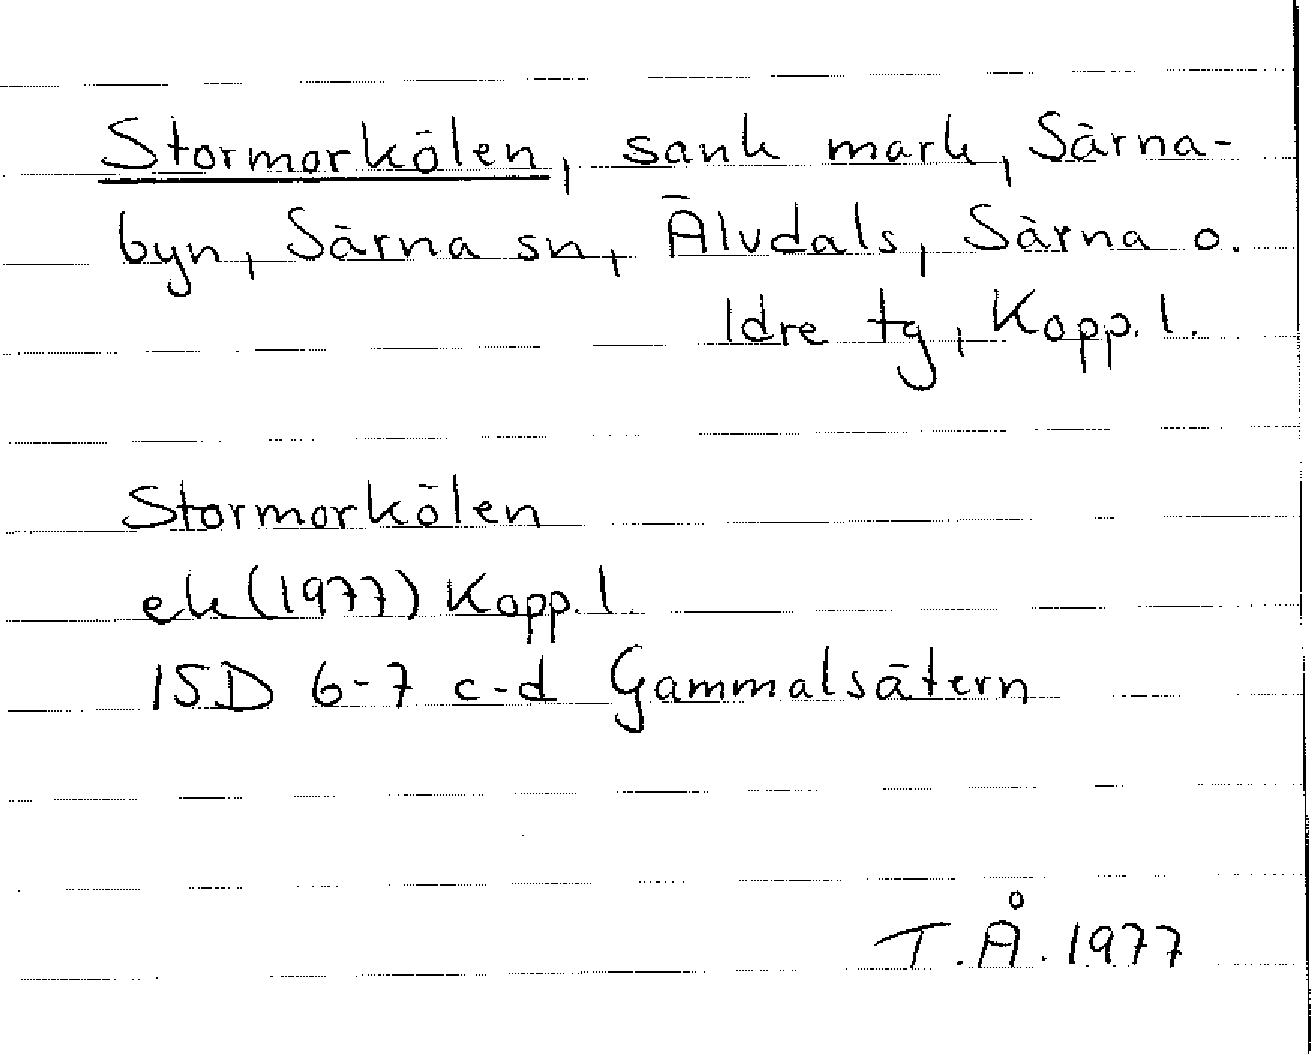 Stormorkölen, sank mark, Särna-
byn, Särna sn, Älvdals, Särna o.
Idre tg, Kopp. l.
Stormorkölen
ek (1977) Kopp. l
15D 6-7 c-d Gammalsätern
T.Å. 1977